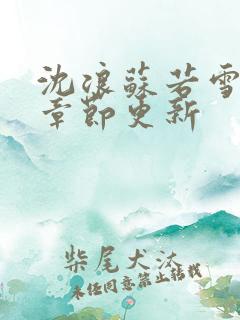 沈浪蘇若雪
章節更新
柴尾犬沐
未经同意禁止转载